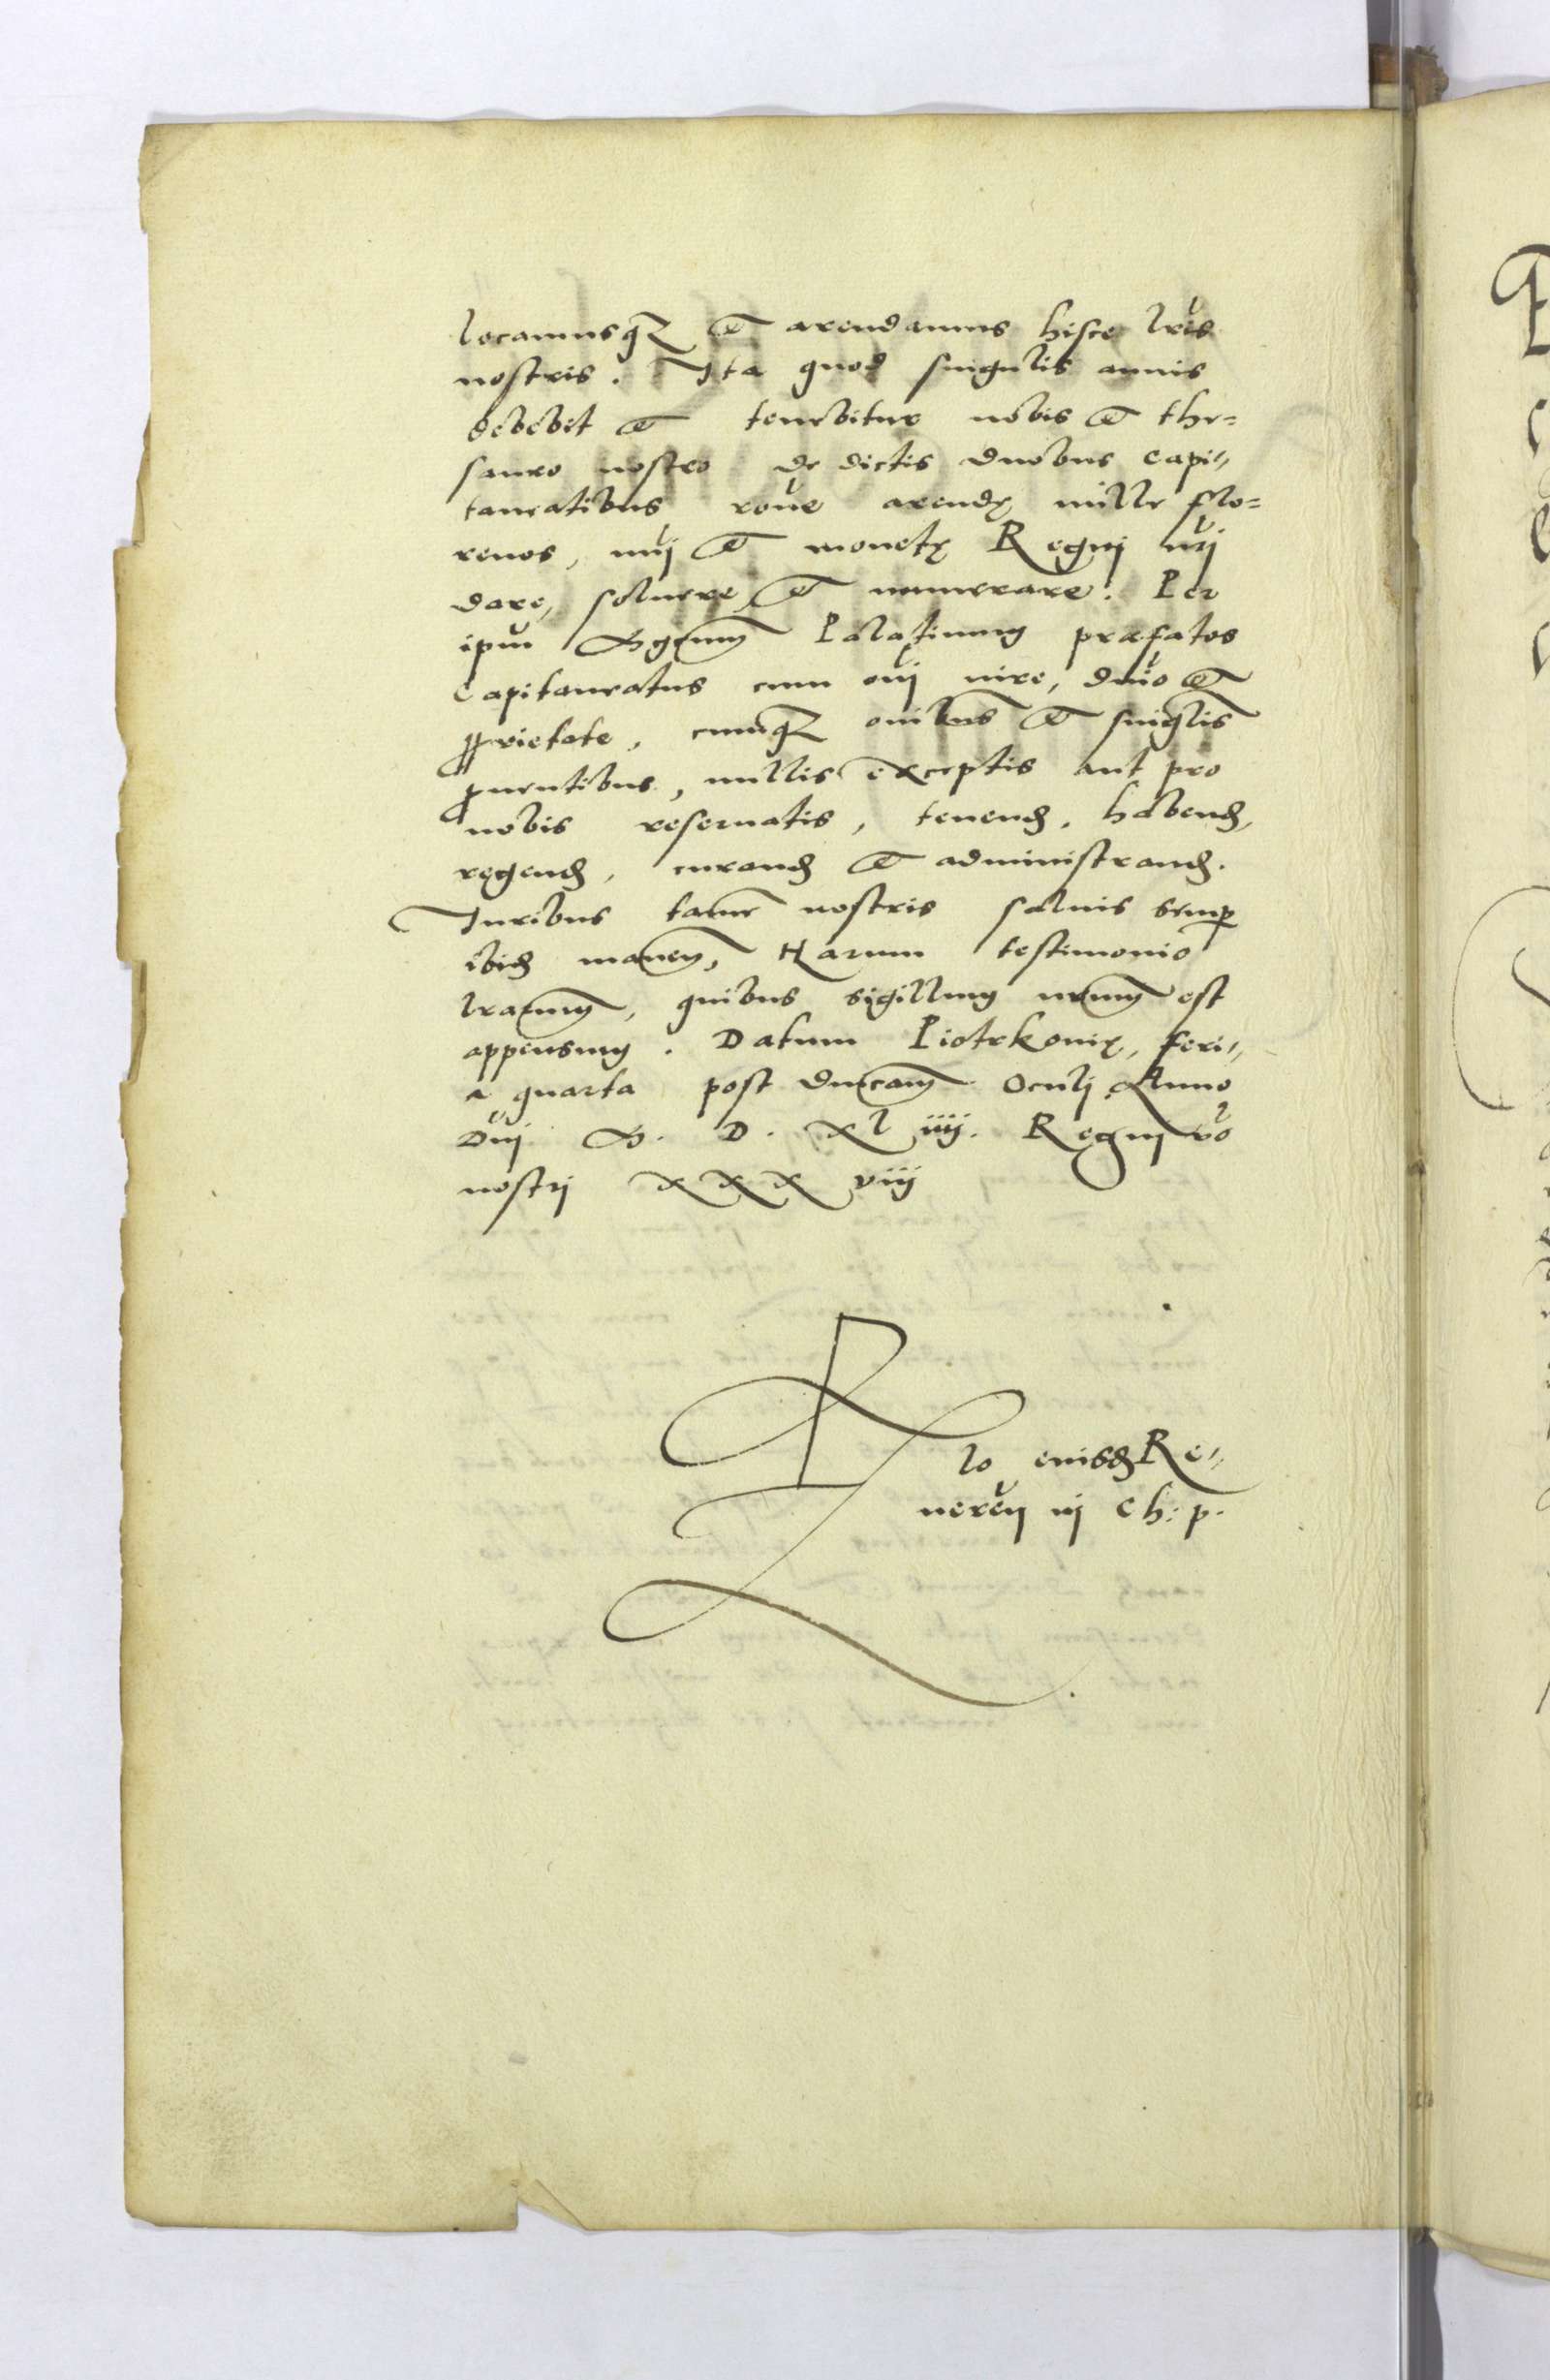 locamusq₃ et arendamus hisce lr̃is
nostris. Ita quod singulis annis
debebit et tenebitur nobis et the=
sauro nostro de dictis duobus Capi=
taneatibus rõne arendę mille flo=
renos, nũj et monetę Regnj nr̃j
dare, soluere, et numerare. Per
ipm̃ Mgcũm Palatinum præfatos
Capitaneatus cum oñj iure, dñio et
ꝓprietate, cumq₃ oñibus et singlis
ꝓuentibus, nullis exceptis aut pro
nobis reseruatis, tenend, habend,
regend, curand et administrand.
Iuribus tamẽ nostris saluis semꝑ
ibid maneñ, Harum testimonio
lrarum, quibus sigillum nrum est
appensum. Datum Piotrkouię, feri=
a quarta post dnicam Oculj Anno
Dñj M. D. xl iiij. Regni võ
nostrj xxx viij
Rlo eiusd Re=
ueren nj Ch: p.